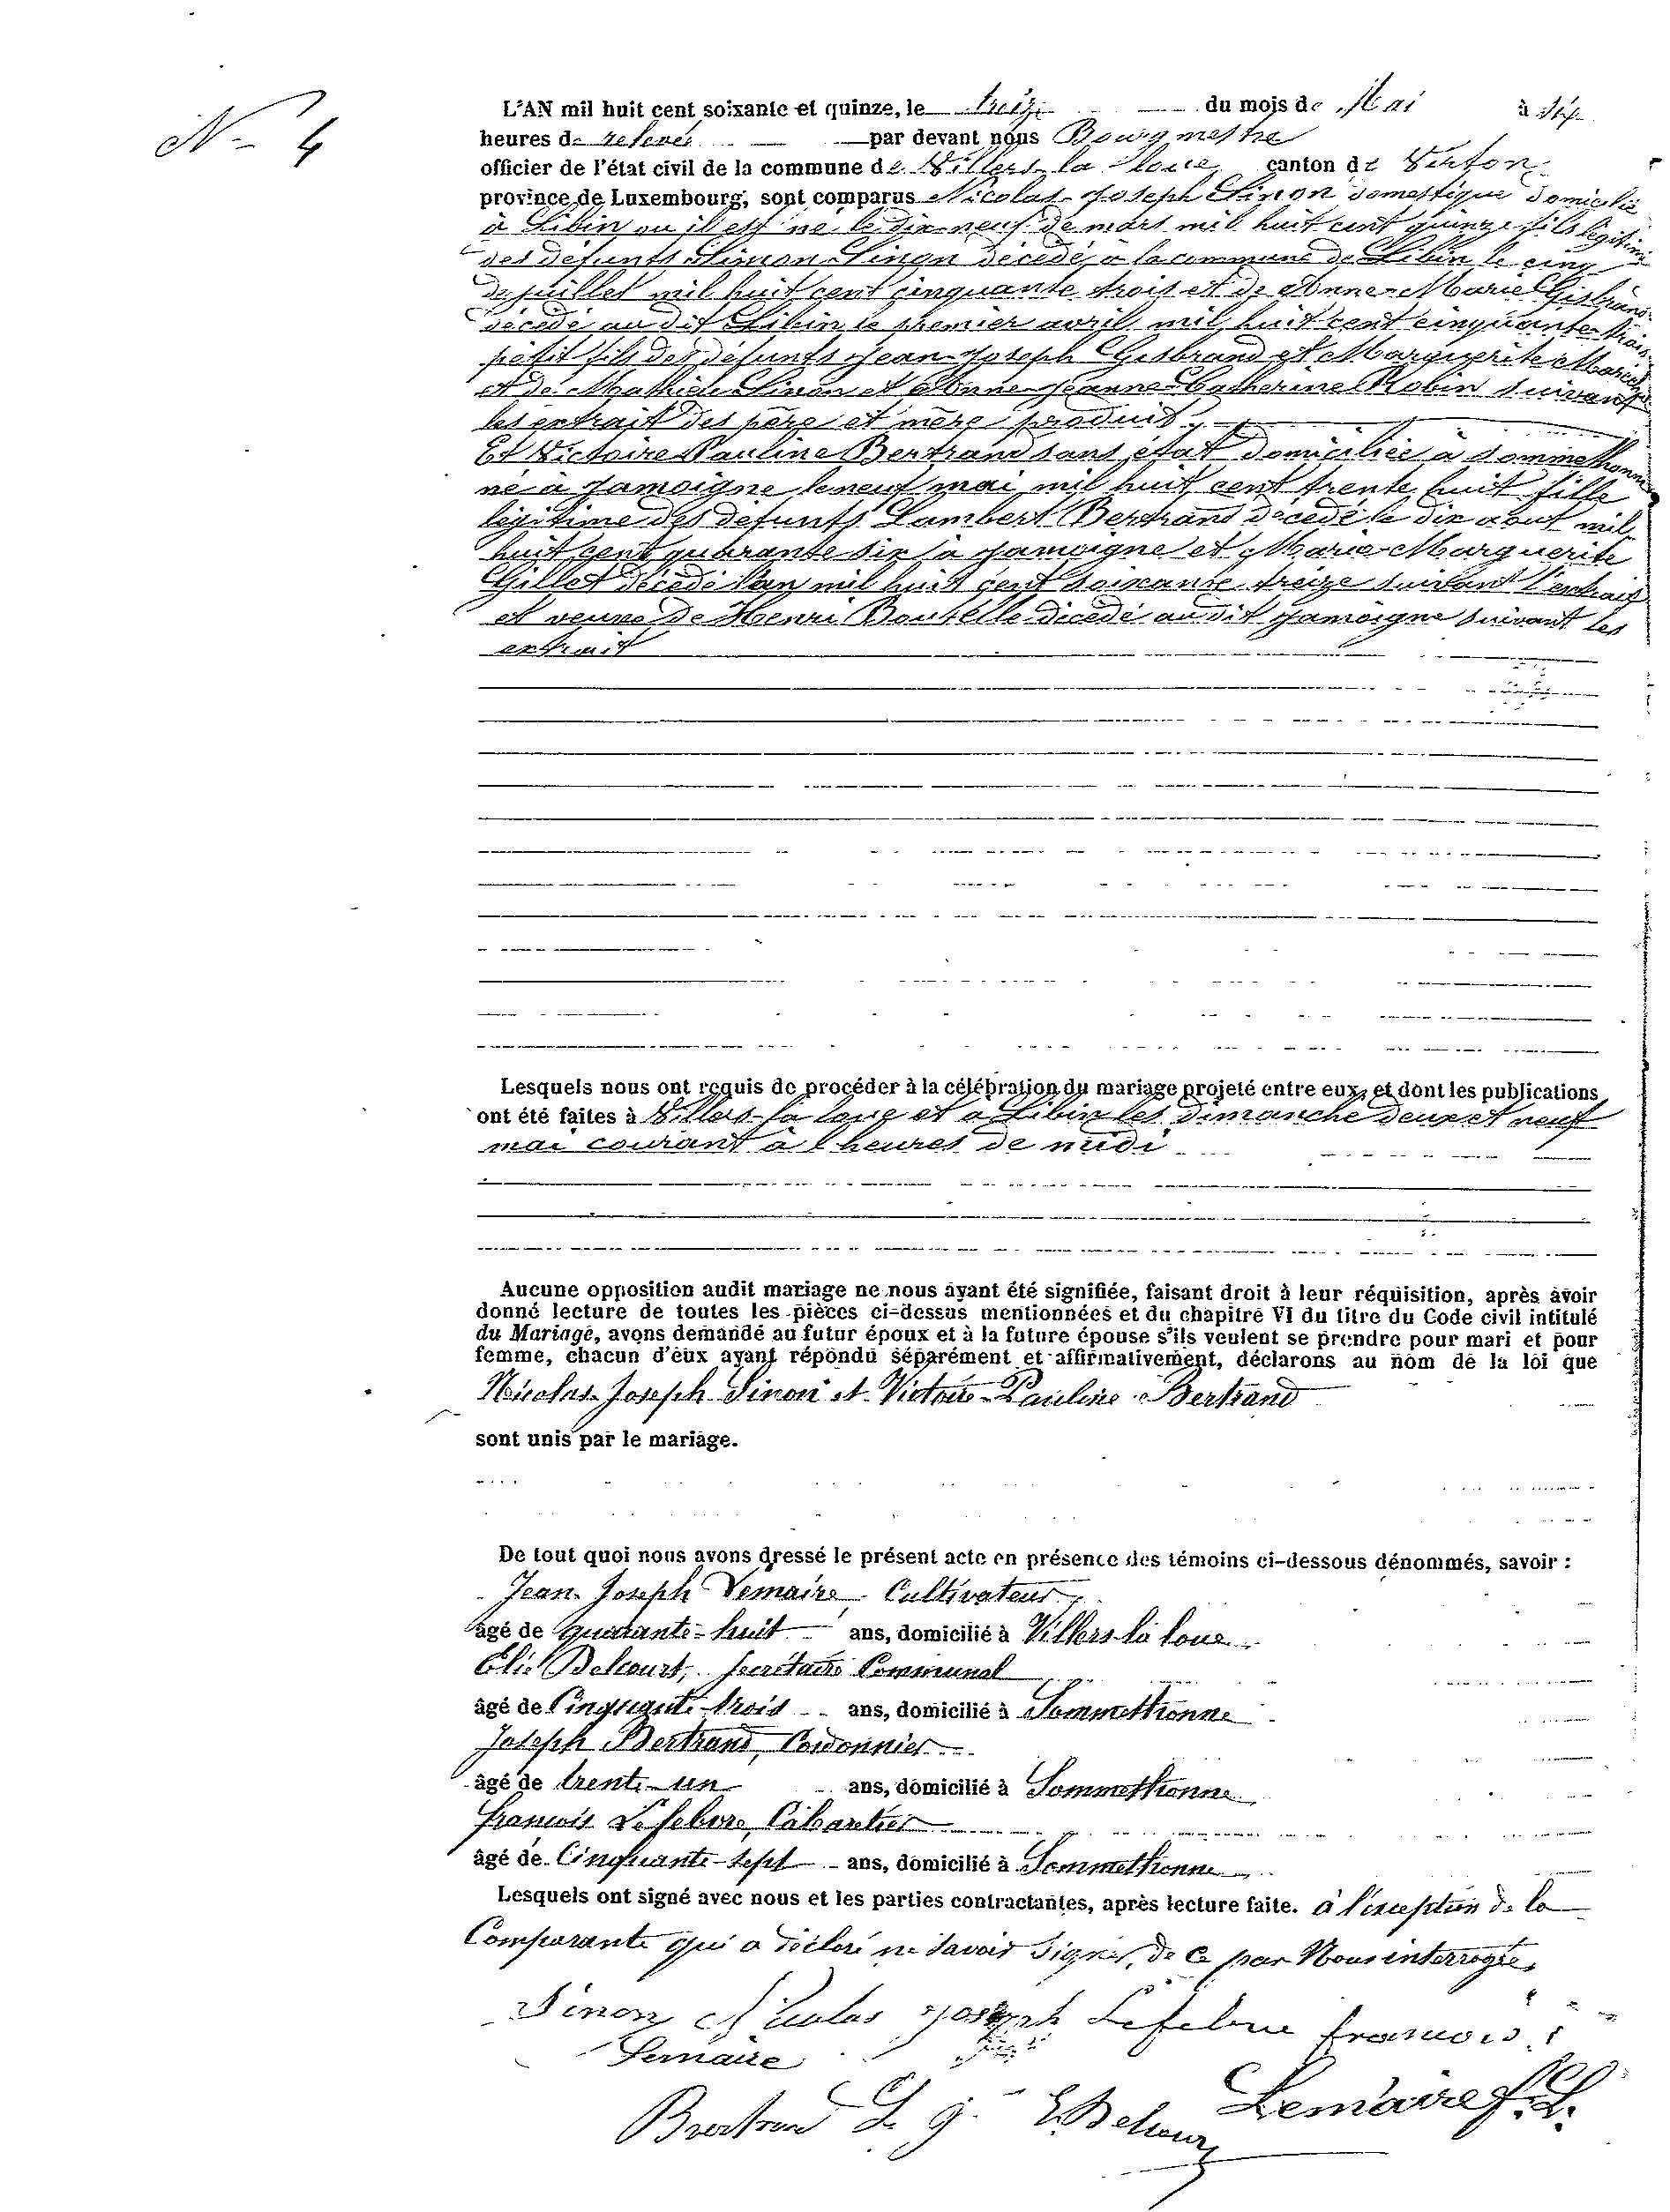 N - 4
L'AN mil huit cent soixante et quinze, le treize du mois de Mai à six
heures de relevée par devant nous Bourgmestre
officier de l'état civil de la commune de Villers-la-loue canton de Virton
province de Luxembourg, sont comparus Nicolas-Joseph Sinon domestique domicilié
à Libin ou il est né le dix-neuf de mars mil huit cent quinze fils légitime
des défunts Simon Sinon décedé à la commune de Libin le cinq
de juillet mil huit cent cinquante trois et de Anne-Marie Gisbrand
décedé au dit Libin le premier avril mil huit cent cinquante trois
petit fils des défunts Jean-Joseph Gisbrand et Marguerite
et de Mathieu Sinon et Anne-Jeanne-Catherine Robin suivant
les extrait des père et mère produit.
Et Victoire Pauline Bertrand sans état domiciliée à Sommethonne
né à Jamoigne le neuf mai mil huit cent trente huit fille
légitime des défunts Lambert Bertrand décedé le dix aout mil
huit cent quarante six à Jamoigne et Marie-Marguerite
Gillet décedé l'an mil huit cent soixante treize suivant l'extrait
et veuve de Henri décedé au dit Jamoigne suivant les
extrait
Lesquels nous ont requis de procéder à la célébration du mariage projeté entre eux, et dont les publications
ont été faites à Villers-la loue et a Libin les dimanche deux et neuf
mai courant à heures de midi
Aucune opposition audit mariage ne nous ayant été signifiée, faisant droit à leur réquisition, après avoir
donné lecture de toutes les pièces ci-dessus mentionnées et du chapitre VI du titre du Code civil intitulé
du Mariage, avons demandé au futur époux et à la future épouse s'ils veulent se prendre pour mari et pour
femme, chacun d'eux ayant répondu séparément et affirmativement, déclarons au nom de la loi que
Nicolas-Joseph Sinon et Victoire-Pauline Bertrand
sont unis par le mariage.
De tout quoi nous avons dressé le présent acte en présence des témoins ci-dessous dénommés, savoir :
Jean-Joseph Lemaire, Cultivateur,
âgé de quarante-huit ans, domicilié à Villers-la loue
Elie Delcourt, secrétaire Communal
âgé de Cinquante-trois ans, domicilié à Sommethonne
Joseph Bertrand, Cordonnier
âgé de trente-un ans, domicilié à Sommethonne
françois Lefebvre, Cabaretier
âgé de Cinquante-sept ans, domicilié à Sommethonne
Lesquels ont signé avec nous et les parties contractantes, après lecture faite. à l'exception de la
Comparante qui a déclaré ne savoir signer, de ce par Nous interrogée,
Sinon Nicolas Joseph Lefebvre francois
Lemaire
Bertrand J. E. Delcourt Lemaire